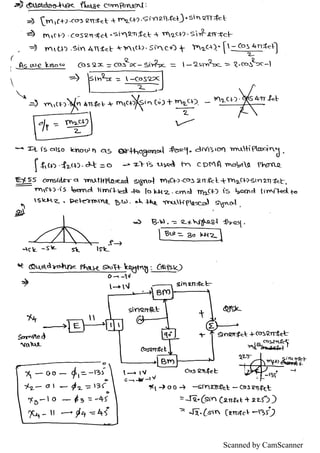 ⇒) Quadrature Phase Component:
⇒ [m₁(t)·cos2πfct + m₂(t)·sin2πfct]·sin2πfct
⇒ m₁(t)·cos2πfct·sin2πfct + m₂(t)·sin²2πfct
⇒ m₁(t)·sin4πfct + m₁(t)·sin(0) + m₂(t)·[1-cos4πfct]
2
As we know cos2x = cos²x - sin²x = 1-2sin²x = 2cos²x-1
⇒ sin²x = 1-cos2x
2
o/p = m₂(t)
2
→ It is also known as orthogonal freq. division multiplexing.
∫f₁(t)·f₂(t)·dt = 0 → It is used in CDMA mobile phone
Ex:55 consider a multiplexed signal m₁(t)cos2πfct + m₂(t)sin2πfct,
m₁(t) is band limited to 10kHz and m₂(t) is band limited to
15kHz. Determine B.W. of the multiplexed signal.
⇒ B.W. = 2×highest freq.
BW = 30 kHz
-15k -5k 5k 15k f→
* Quadrature Phase Shift Keying: (QPSK)
0→-1V
1→1V
BM
sin2πfct
X4
E
11
1 1
sin2πfct
+
Σ
QPSK
Sampled
value
90°
cos2πfct
+
sin2πfct + cos2πfct
BM
1→1V
cos2πfct
X1 - 00 - ϕ1 = -135°
X2 - 01 - ϕ2 = 135°
X3 - 10 - ϕ3 = -45°
X4 - 11 → ϕ4 = 45°
X1 → 00 → -sin2πfct - cos2πfct
= √2·(sin(2πfct + 225°))
= √2·(sin(2πfct - 135°)
Scanned by CamScanner